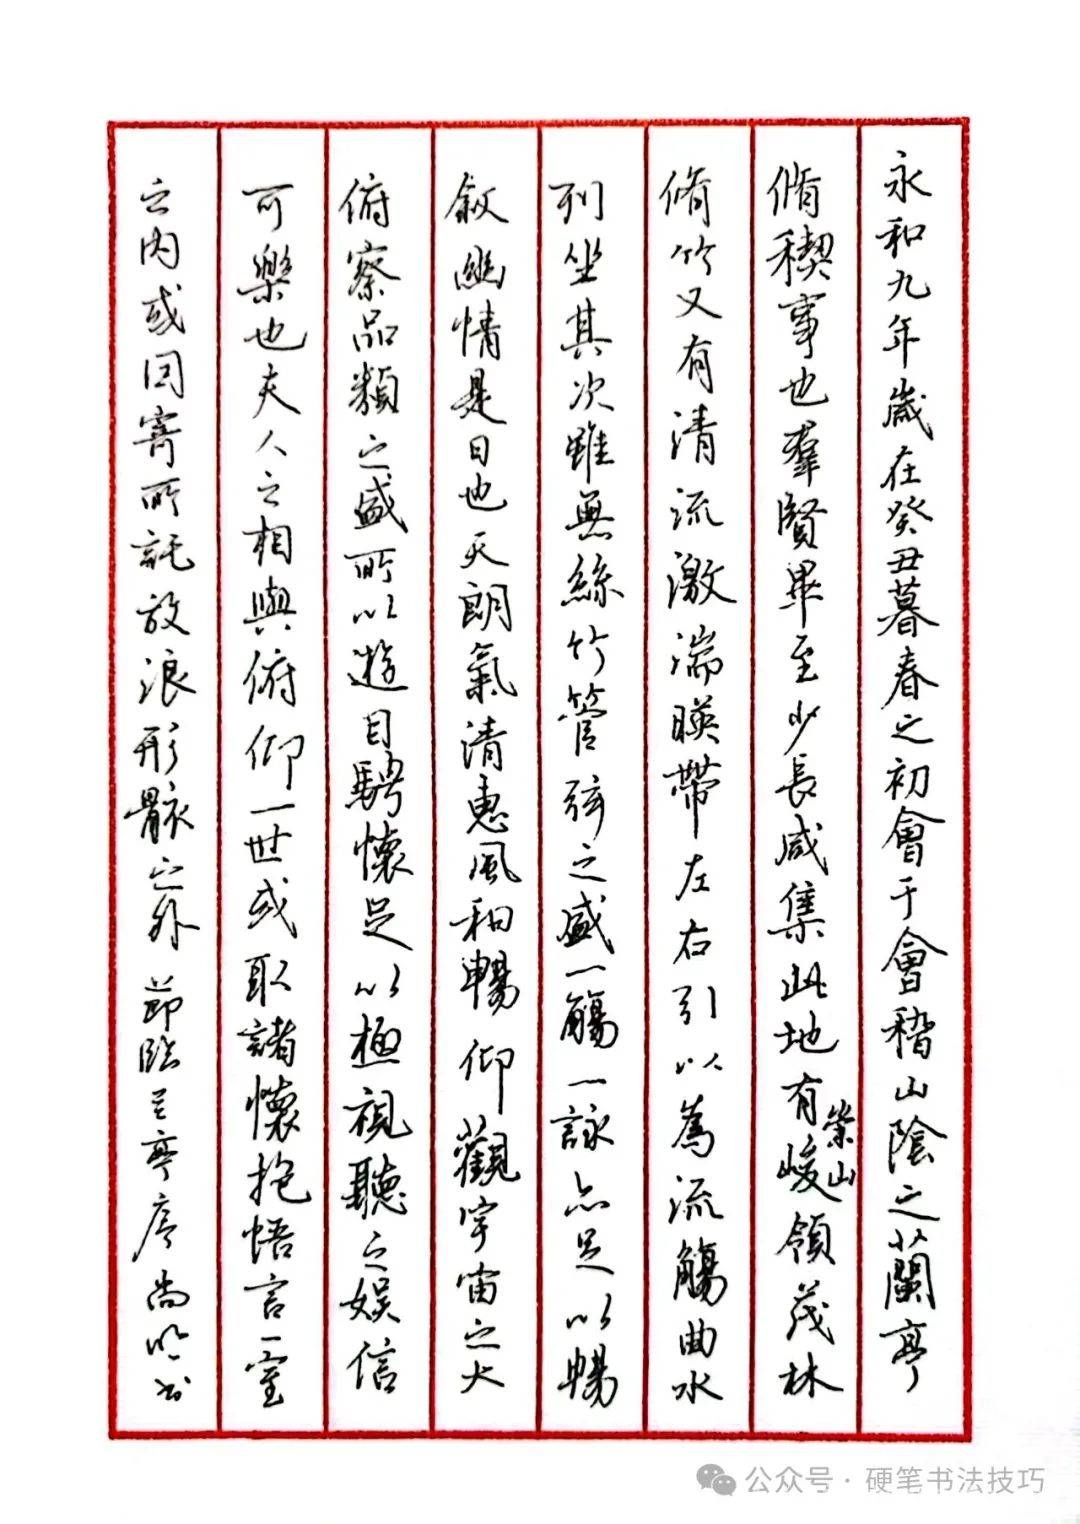 永和九年歲在癸丑暮春之初會于會稽山陰之蘭亭
脩稧事也羣賢畢至少長咸集此地有崇山峻領茂林
脩竹又有清流激湍暎帶左右引以為流觴曲水
列坐其次雖無絲竹管弦之盛一觴一詠亦足以暢
敘幽情是日也天朗氣清惠風和暢仰觀宇宙之大
俯察品類之盛所以遊目騁懷足以極視聽之娛信
可樂也夫人之相與俯仰一世或取諸懷抱悟言一室
之內或因寄所託放浪形骸之外 節臨蘭亭序 尚吟書
公众号·硬笔书法技巧